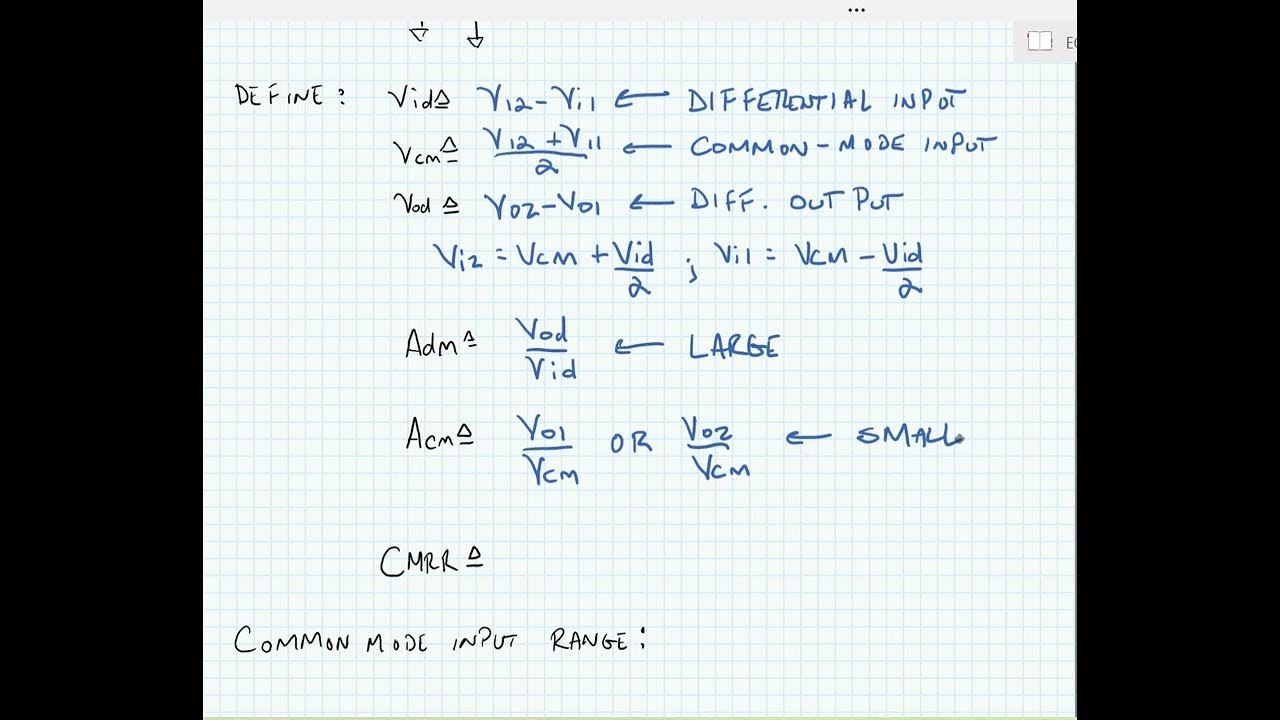 ...
EC
DEFINE: Vid≜ Vi2-Vi1 ← DIFFERENTIAL INPUT
Vcm≜ Vi2+Vi1/2 ← COMMON-MODE INPUT
Vod≜ Vo2-Vo1 ← DIFF. OUTPUT
Vi2 = Vcm + Vid/2 ; Vi1 = Vcm - Vid/2
Adm≜ Vod/Vid ← LARGE
Acm≜ Vo1/Vcm OR Vo2/Vcm ← SMALL
CMRR≜
COMMON MODE INPUT RANGE: